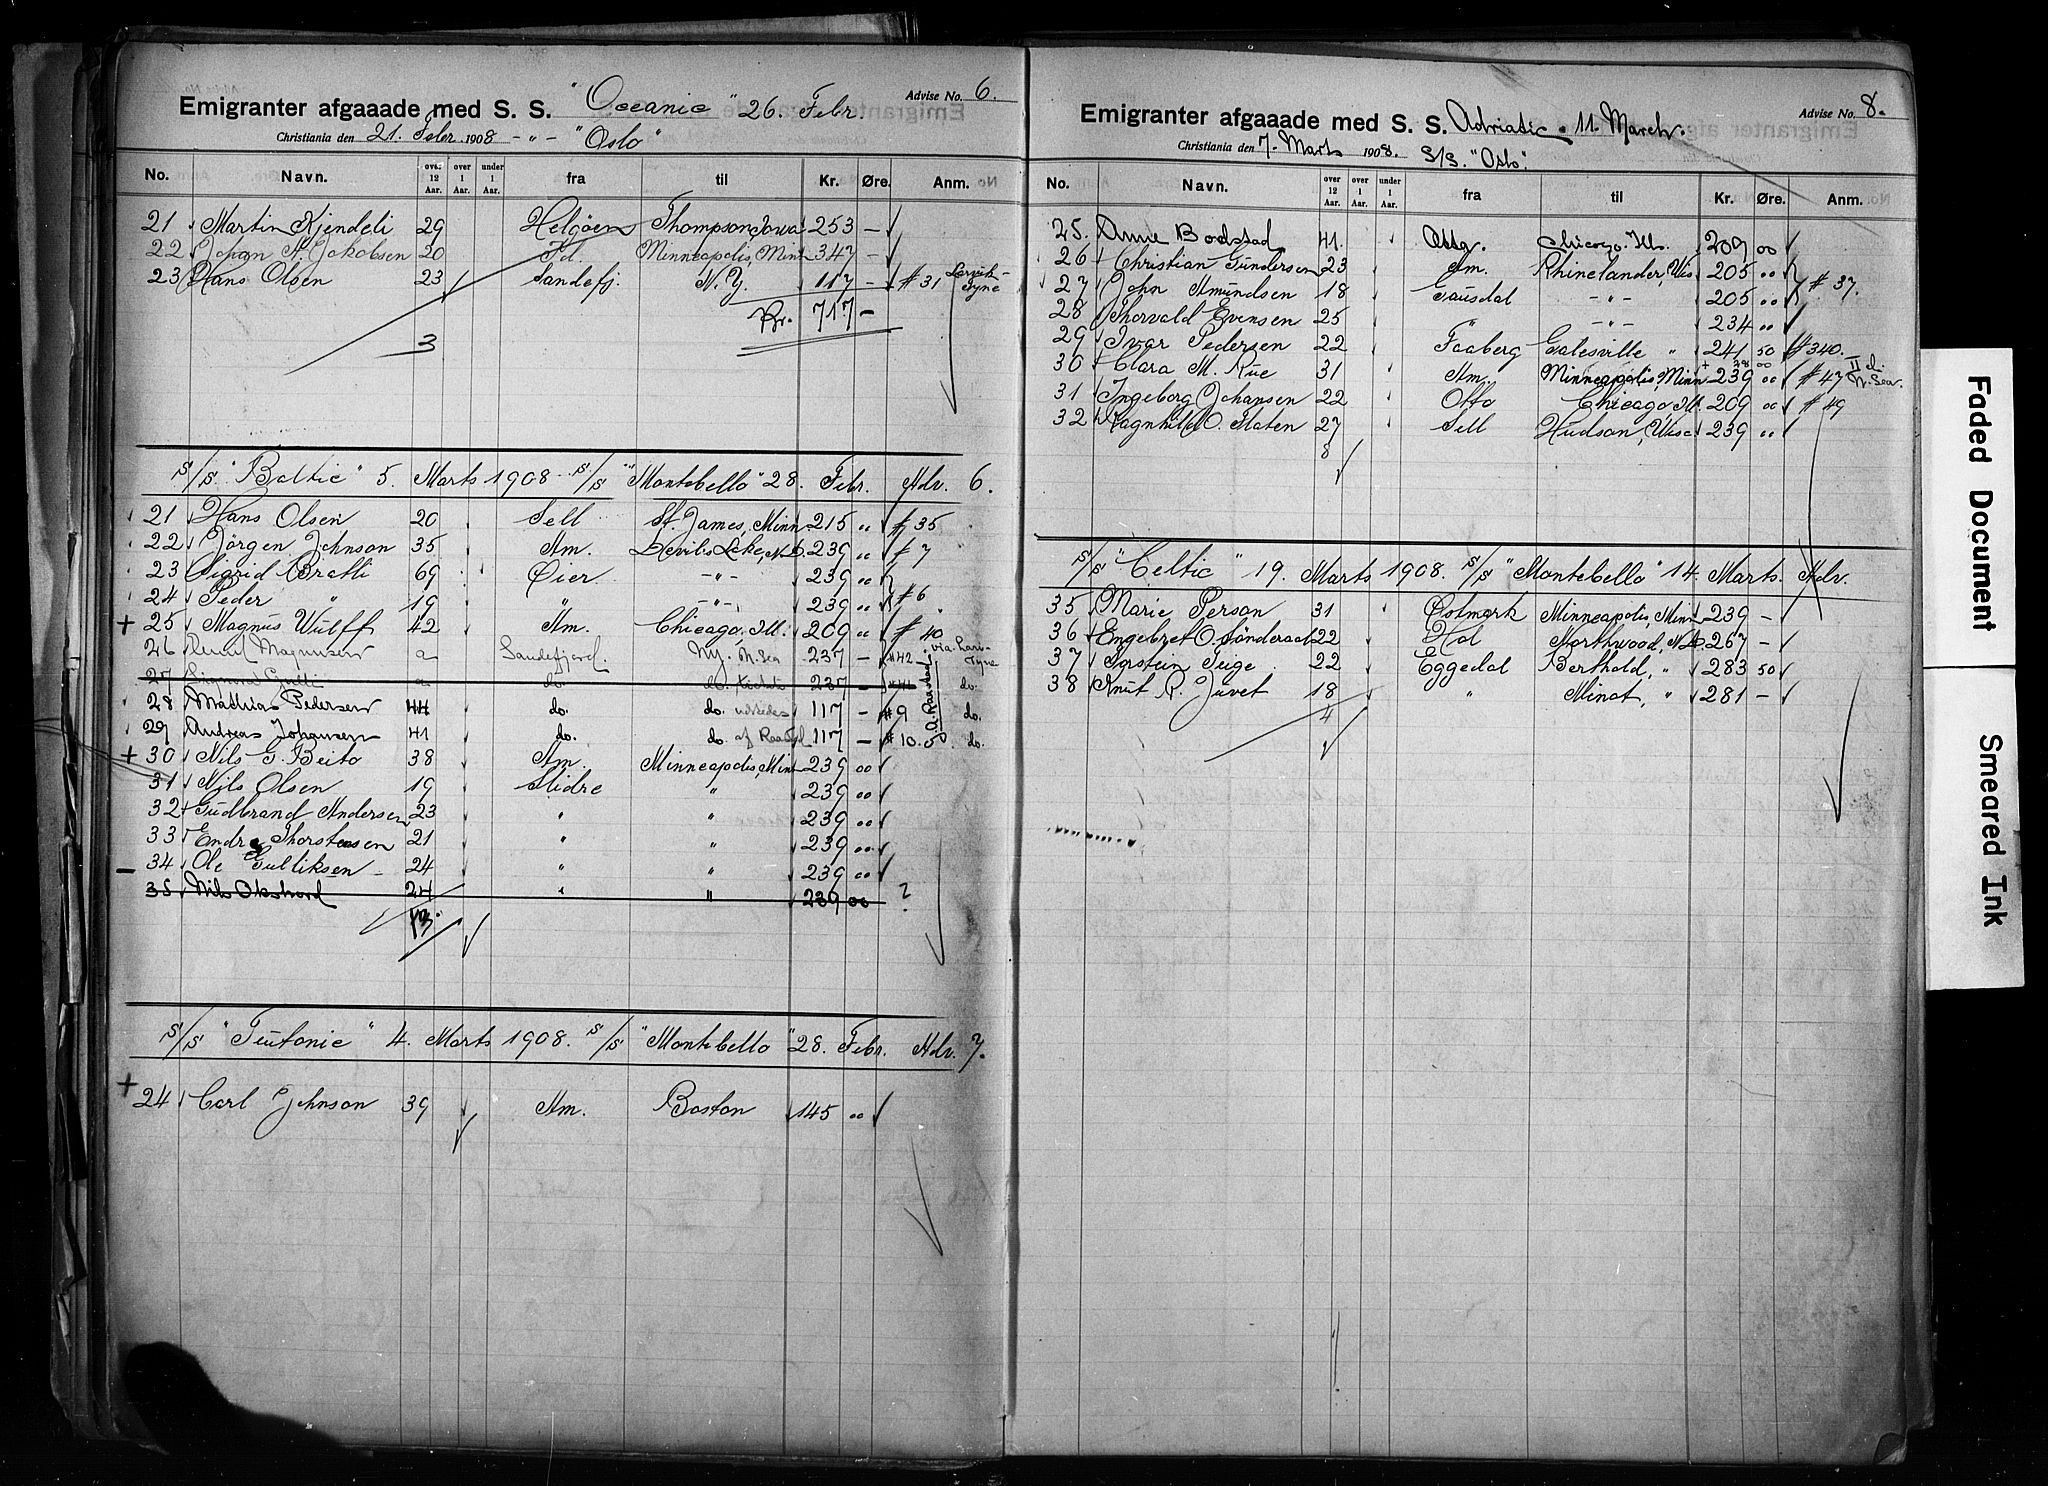 Emigranter afgaaade med S. S. "Oceanic" 26. Febr. Advise No. 6.
Christiania den 21. Febr. 1908 - " - "Oslo"
No. Navn. over 12 Aar. over 1 Aar. under 1 Aar. fra til Kr. Øre. Anm.
21 Martin Kjendeli 29 Helgöen Thompson Iowa 253 -
22 Johan A. Jakobsen 20 Id. Minneapolis, Minn 347 -
23 Hans Olsen 23 Sandefj. N.Y. 117 - # 31 Larvik-Tyne
Kr. 717 -
3
S/S "Baltic" 5. Marts 1908 S/S "Montebello" 28. Febr. Adv. 6.
21 Hans Olsen 20 Sell St. James, Minn 215 " # 35
22 Jörgen Johnson 35 Am. Devils Lake, N.D. 239 " # 7
23 Sigrid Bratli 69 Øier - " - 239 "
24 Peder " 19 " - " - 239 " # 6
+ 25 Magnus Wulff 42 Am. Chicago, Ill. 209 " # 40
26 Magnussen a Sandefjord. NY. N. Sea 237 - # 42 via Larv-Tyne
27 a do. do. 237 - do.
28 Mathias Pedersen 44 do. do. udstedes 117 - # 9 do.
29 Andreas Johansen 41 do. do. af 117 - # 10. do.
+ 30 Nils G. Beito 38 Am. Minneapolis, Minn 239 00
31 Nils Olsen 19 Slidre " 239 00
32 Gudbrand Andersen 23 " " 239 00
33 Endre Thorstensen 21 " " 239 00
- 34 Ole Gulliksen 24 " " 239 00
35 Nils Okshovd 24 " " 239 00 ?
13.
S/S "Teutonic" 4. Marts 1908. S/S "Montebello" 28. Febr. Adv. 7.
+ 24 Carl Johnson 39 Am. Boston 145 "
Emigranter afgaaade med S. S. Adriatic. 11. March. Advise No. 8.
Christiania den 7. Marts 1908. S/S. "Oslo".
No. Navn. over 12 Aar. over 1 Aar. under 1 Aar. fra til Kr. Øre. Anm.
25. Anne Bodstad 41. Otta. Chicago Ills. 209 00
26 Christian Gundersen 23 Am. Rhinelander, Wis 205 "
27 John Amundsen 18 Gausdal - " - 205 " # 37.
28 Thorvald Evensen 25 - " - 234 "
29 Ivar Pedersen 22 Faaberg Galesville " 241 50 # 340.
30 Clara M. Rue 31 Am. Minneapolis, Minn + 28 00 239 00 # 47 II N. Sea.
31 Ingeborg Johansen 22 Otta Chicago, Ill. 209 " # 49
32 Ragnhild O. Maten 27 Sell Hudson, Wisc 239 "
8
S/S "Celtic" 19. Marts 1908. S/S "Montebello" 14. Marts. Adv.
35 Marie Person 31 Minneapolis, Minn 239 -
36 Engebret O. 22 Hol Northwood, N.D. 267 -
37 Torstein Teige 22 Eggedal Berthold, " 283 50
38 Knut R. Juvet 18 " Minot, " 281 -
4
Faded Document
Smeared Ink